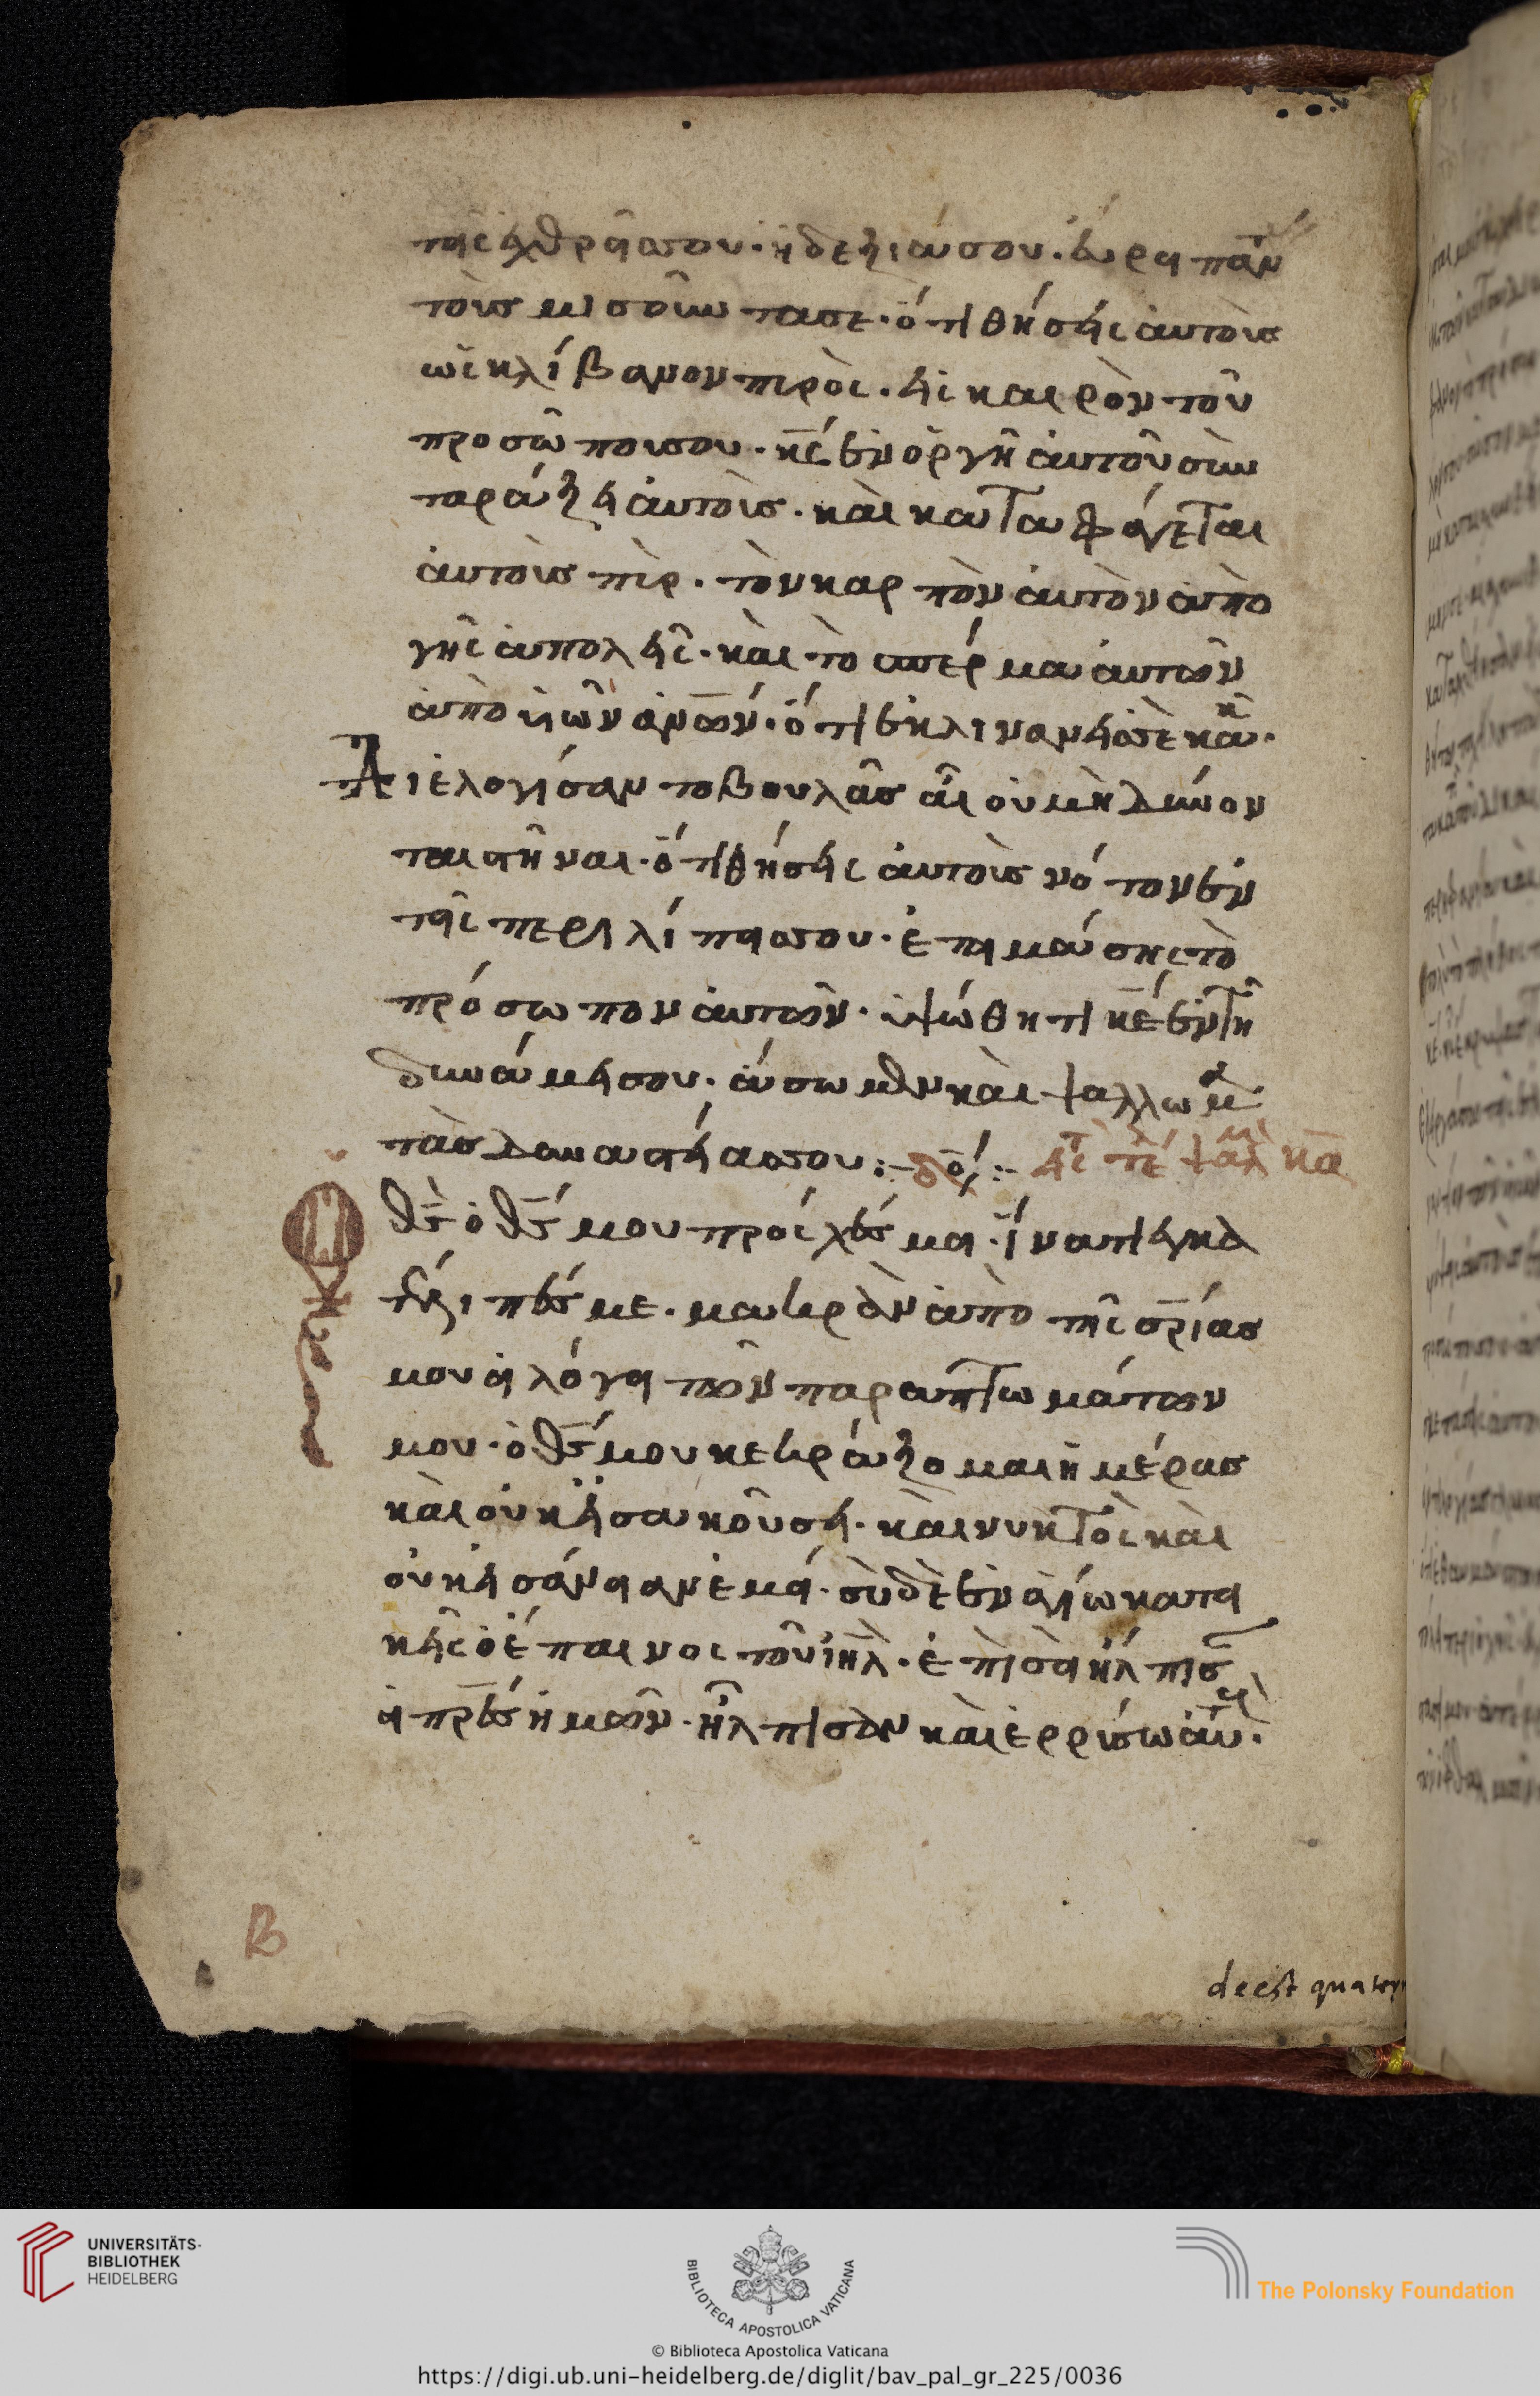 τοῖς ἐχθροῖς σου· ἡ δεξιά σου. εὕροι πάν
τοὺς μισοῦντάς σε· ὅτι θήσεις αὐτοὺς
ὡς κλίβανον πυρὸς. εἰς καιρὸν τοῦ
προσώπου σου· κς ἐν ὀργῆ αὐτοῦ συν
ταράξει αὐτοὺς. καὶ καταφάγεται
αὐτοὺς πῦρ. τὸν καρπὸν αὐτὸν ἀπὸ
γῆς ἀπολεῖς. καὶ τὸ σπέρμα αὐτῶν
ἀπὸ υἱῶν ἀνῶν· ὅτι ἔκλιναν εἰς σὲ κακὰ.
Διελογίσαντο βουλὰς αἷς οὐ μὴ δύνον
ται στῆναι. ὅτι θήσεις αὐτοὺς νότον ἐν
τοῖς περιλίποις σου. ἑτοιμάσης τὸ
πρόσωπον αὐτῶν. ὑψώθητι κε ἐν τῆ
δυνάμει σου. ἄσωμεν καὶ ψάλλωμεν
τὰς δυναστείας σου:- δόξ:- εἰς τέ ψαλ κα
θς ὁ θς μου πρόσχες μοι. ἵνα τί ἐγκα
τέλιπές με. μακρὰν ἀπὸ τῆς σρίας
μου οἱ λόγοι τῶν παραπτωμάτων
μου. ὁ θς μου κεκράξομαι ἡμέρας
καὶ οὐκ εἰσακούσει. καὶ νυκτὸς καὶ
οὐκ εἰς ἄνοιαν ἐμοί. σὺ δὲ ἐν ἁγίω κατοι
κεῖς ὁ ἔπαινος τοῦ ιηλ. ἐπὶ σοὶ ἤλπισαν
οἱ πρες ἡμῶν. ἤλπισαν καὶ ἐρρίσω αὐτούς.
Β
deest quater
UNIVERSITÄTS-
BIBLIOTHEK
HEIDELBERG
BIBLIOTECA APOSTOLICA VATICANA
The Polonsky Foundation
© Biblioteca Apostolica Vaticana
https://digi.ub.uni-heidelberg.de/diglit/bav_pal_gr_225/0036